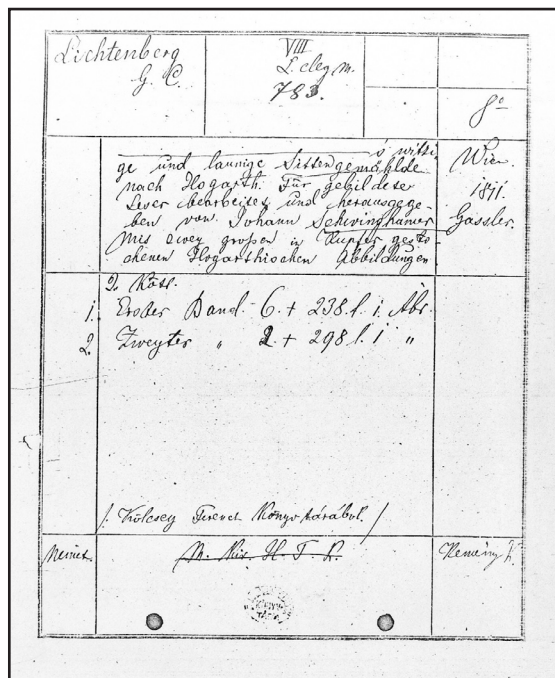 Lichtenberg
G. C.
VIII
L. eleg. m.
783.
8°
s witzi-
ge und launige Sittengemählde
nach Hogarth. Für gebildete
Leser bearbeitet und herausgege
ben von Johann Schwinghamer
Mit zwey großen in Kupfer gesto
chenen Hogarthischen Abbildungen
Wien.
1811.
Gassler.
2. Köt.
1. Erster Band. 6. + 238. l. 1. Ábr.
2. Zweyter „ 2. + 298 l. 1 „
/. Kölcsey Ferenc Könyvtárából. /
Német.
M. H. T. K.
Kemény K.